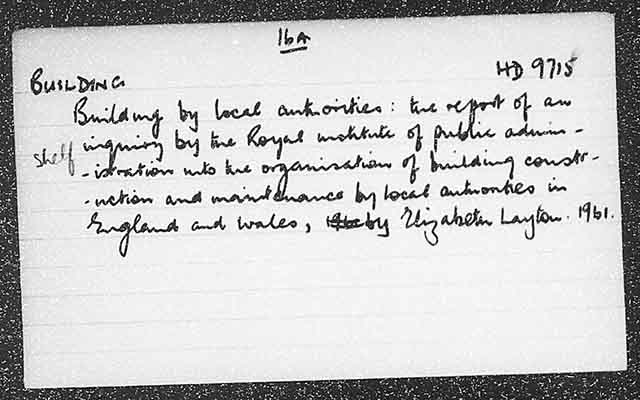 16A
BUILDING
HD 9715
Building by local authorities: the report of an
shelf inquiry by the Royal institute of public admin-
-istration into the organisation of building constr-
-uction and maintenance by local authorities in
England and Wales, by Elizabeth Layton. 1961.